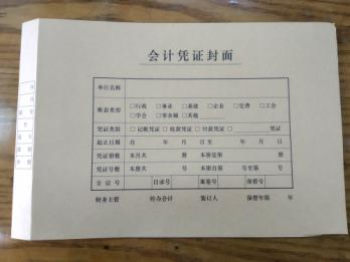 会计凭证封面
单位名称
账面类别 □行政 □事业 □基建 □企业 □党费 □工会
□学会 □零余额 □其他
凭证类别 □记账凭证 □收款凭证 □付款凭证 □ 凭证
起止日期 自 年 月 日至 年 月 日
凭证册数 本月共 册 本册是第 册
凭证号数 本册共 号 本册自第 号至第 号
全宗号 目录号 案卷号 保管号
财务主管 经办会计 装订人 保管年限 年